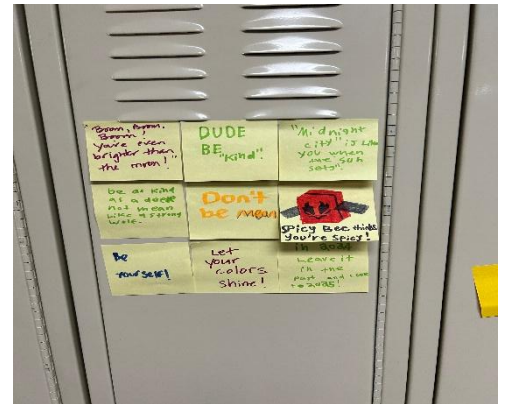 Boom, Boom,
Boom!
You're even
brighter then
the moon!"
DUDE
BE
"kind".
"Midnight
city" is like
you when
the sun
sets".
be as kind
as a deer
not mean
like a strong
wolf.
Don't
be mean
SPicy Bee thinks
You're Spicy!
Be
Yourself!
Let
Your
colors
shine!
in 2024
Leave it
in the
Past and
to 2025!